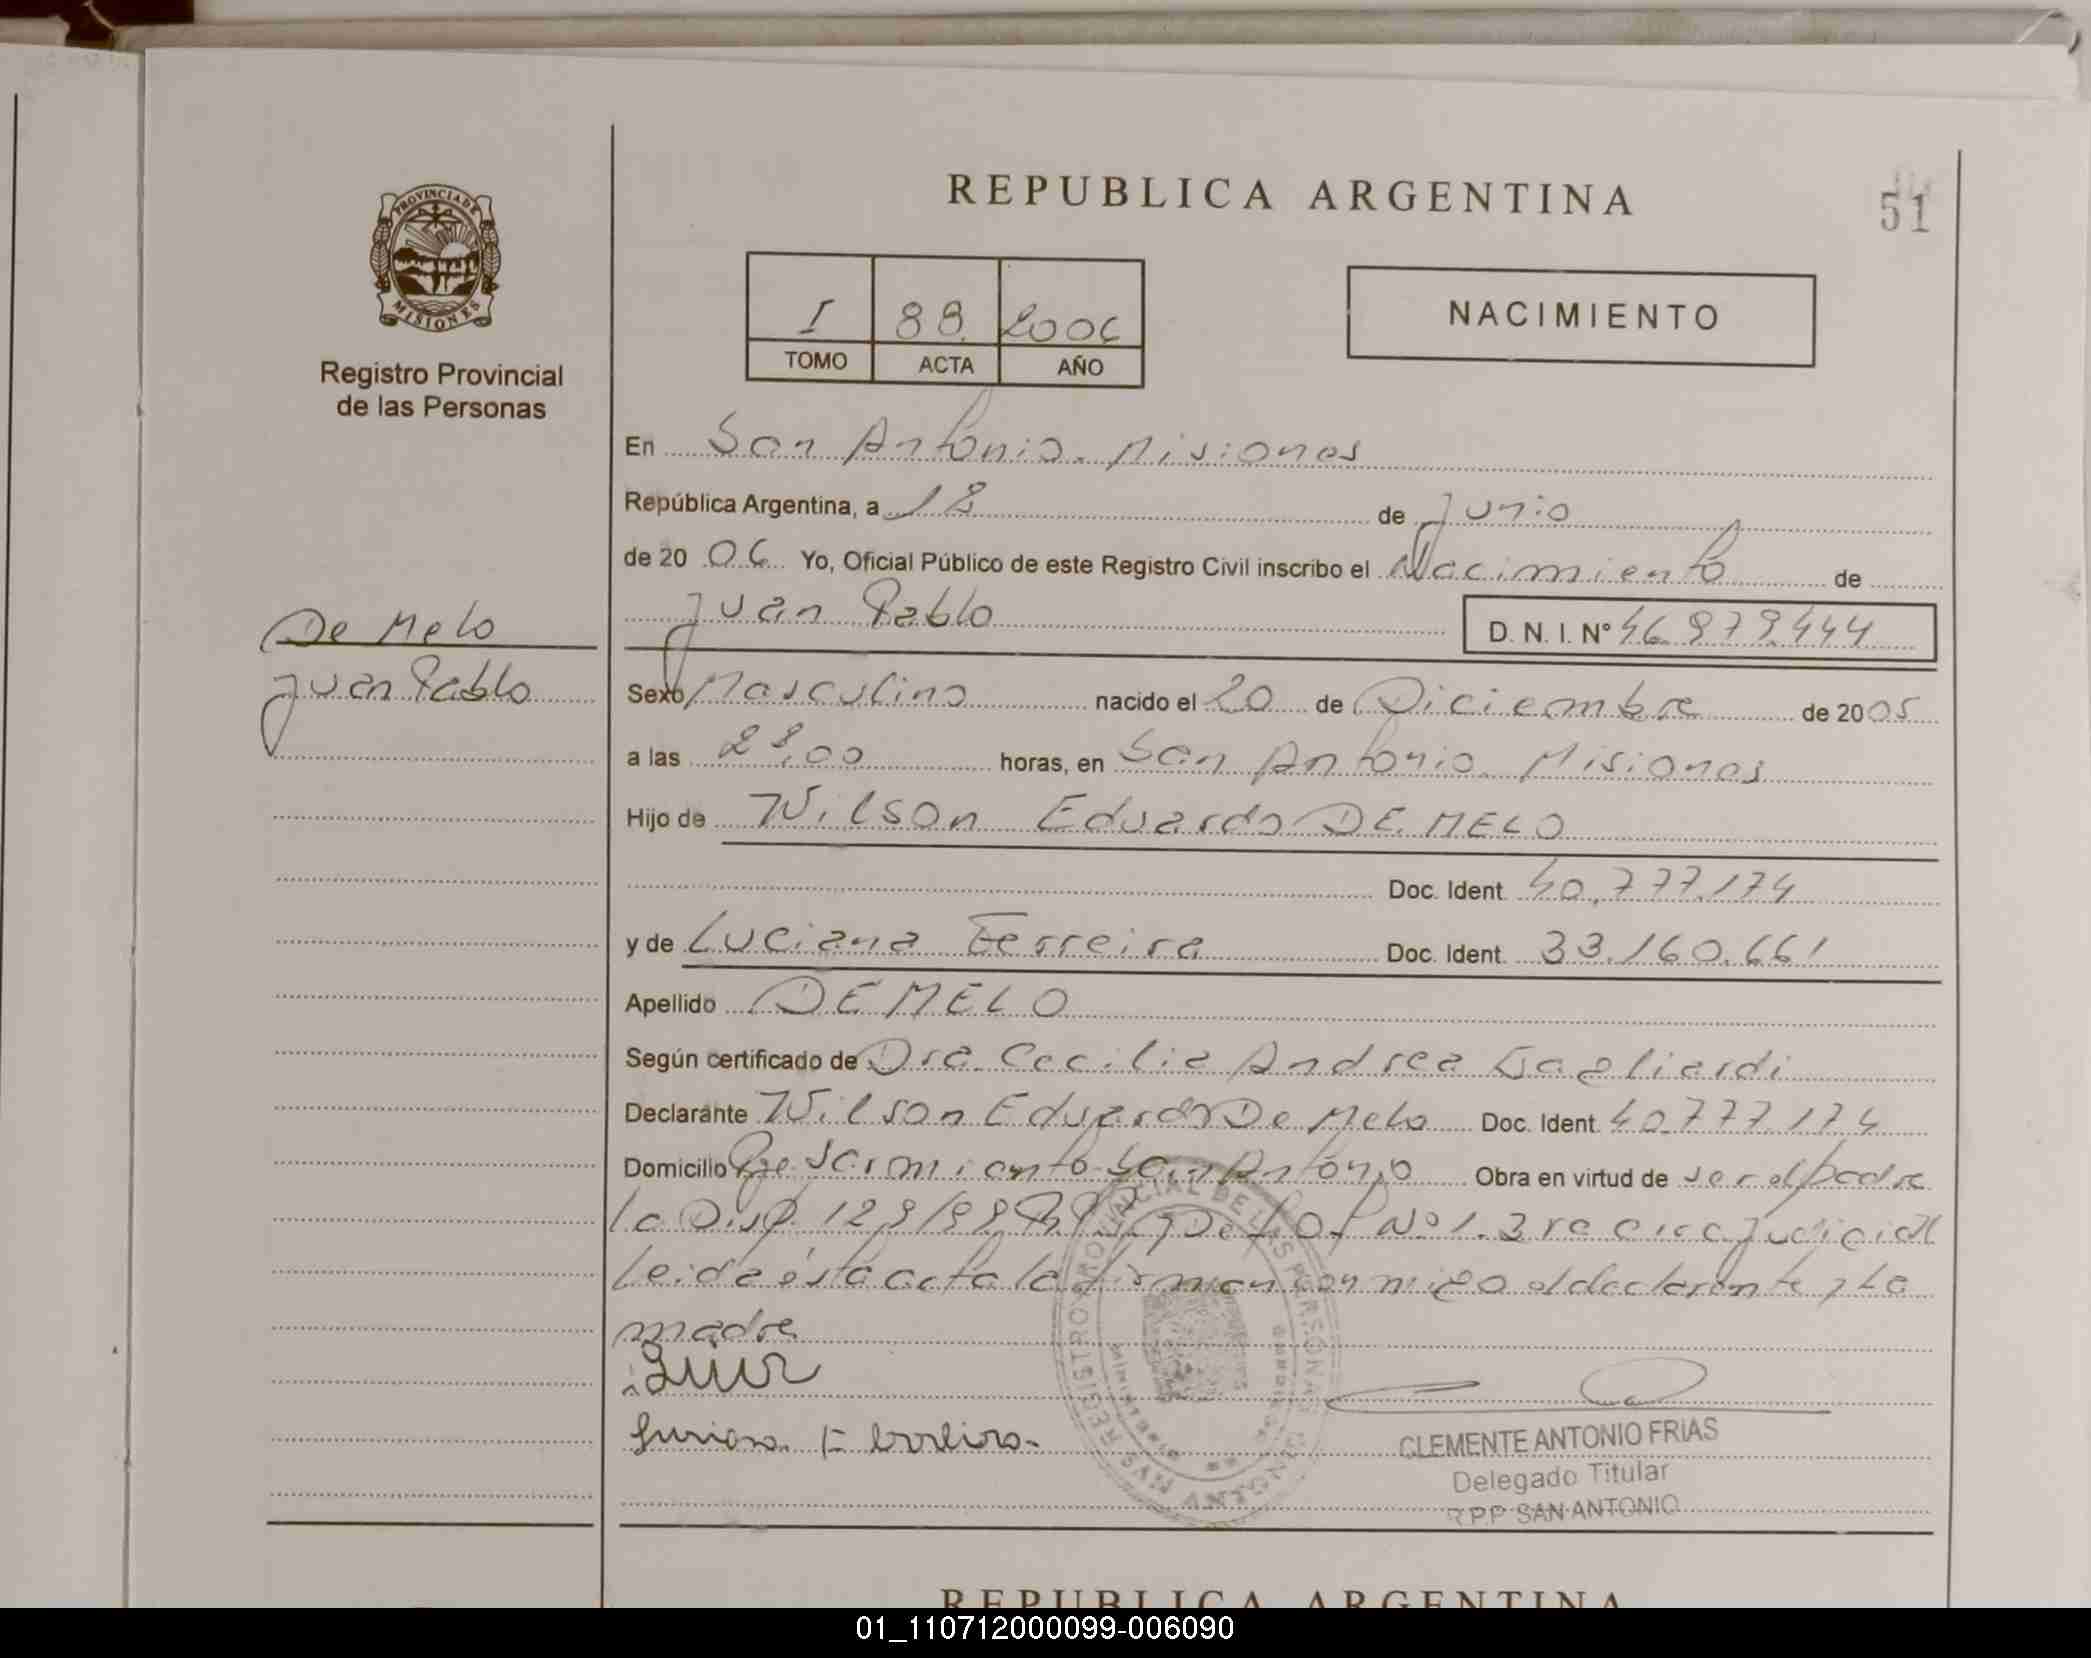 PROVINCIA DE
MISIONES
Registro Provincial
de las Personas
De Melo
Juan Pablo
REPUBLICA ARGENTINA
51
I 88. 2006
TOMO ACTA AÑO
NACIMIENTO
En San Antonio. Misiones
República Argentina, a 18 de Junio
de 20 06 Yo, Oficial Público de este Registro Civil inscribo el Nacimiento de
Juan Pablo D. N. I. Nº 46.979.444
Sexo Masculino nacido el 20 de Diciembre de 2005
a las 23,00 horas, en San Antonio. Misiones
Hijo de Wilson Eduardo DE MELO
Doc. Ident. 40.777.174
y de Luciana Ferreira Doc. Ident. 33.160.661
Apellido DE MELO
Según certificado de Dra. Cecilia Andrea Gagliardi
Declarante Wilson Eduardo De Melo Doc. Ident. 40.777.174
Domicilio Sarmiento San Antonio Obra en virtud de ser el padre
la Disp. 129/99 Nº 1. 3ra circ. judicial
Leida esta acta la firman conmigo el declarante y la
madre
CLEMENTE ANTONIO FRIAS
Delegado Titular
R.P.P. SAN ANTONIO
REGISTRO PROVINCIAL DE LAS PERSONAS
REPUBLICA ARGENTINA
01_110712000099-006090